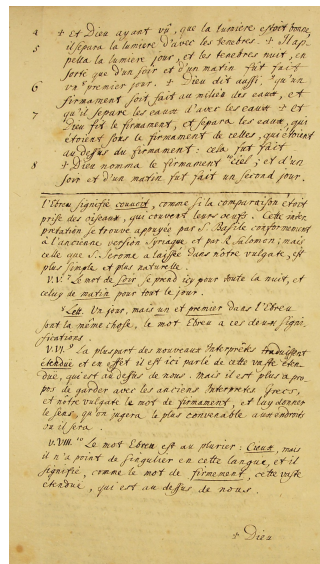 4 + Et Dieu ayant vû, que la lumiere estoit bonne,
5 il separa la lumiere d'avec les tenebres. + Il ap-
pella la lumiere jour, et les tenebres nuit, en
sorte que d'un soir et d'un matin fût fait
6 un premier jour. + Dieu dit aussi, qu'un
firmament soit fait au milieu des eaux, et
7 qu'il separe les eaux d'avec les eaux + et
Dieu fit le firmament, et separa les eaux, qui
étoient sous le firmament de celles, qui étoient
au dessus du firmament: cela fut fait
8 + Dieu nomma le firmament ciel; et d'un
soir et d'un matin fut fait un second jour.
l'Ebreu signifie couvoit, comme si la comparaison étoit
prise des oiseaux, qui couvent leurs oeufs. Cette inter
pretation se trouve appuyée par S. Basile conformement
à l'ancienne version Syriaque et par R. Salomon; mais
celle que S. Jerome a laissée dans nôtre vulgate, est
plus simple et plus naturelle.
V.V. Le mot de soir se prend icy pour toute la nuit, et
celuy de matin pour tout le jour.
Lett. Un jour, mais un et premier dans l'Ebreu
sont la même chose, le mot Ebreu a ces deux signi
fications.
V.VI. La pluspart des nouveaux Interprêts traduisent
étendue et en effet il est ici parlé de cette vaste éten-
due, qui est au dessus de nous. Mais il est plus a pro-
pos de garder avec les anciens Interprets Grecs,
et nôtre vulgate le mot de firmament, et luy donner
le sens, qu'on jugera le plus convenable aux endroits
ou il sera.
V.VIII. Le mot Ebreu est au plurier: Cieux, mais
il n'a point de singulier en cette langue, et il
signifie, comme le mot de firmement, cette vaste
étendue, qui est au dessus de nous.
+ Dieu